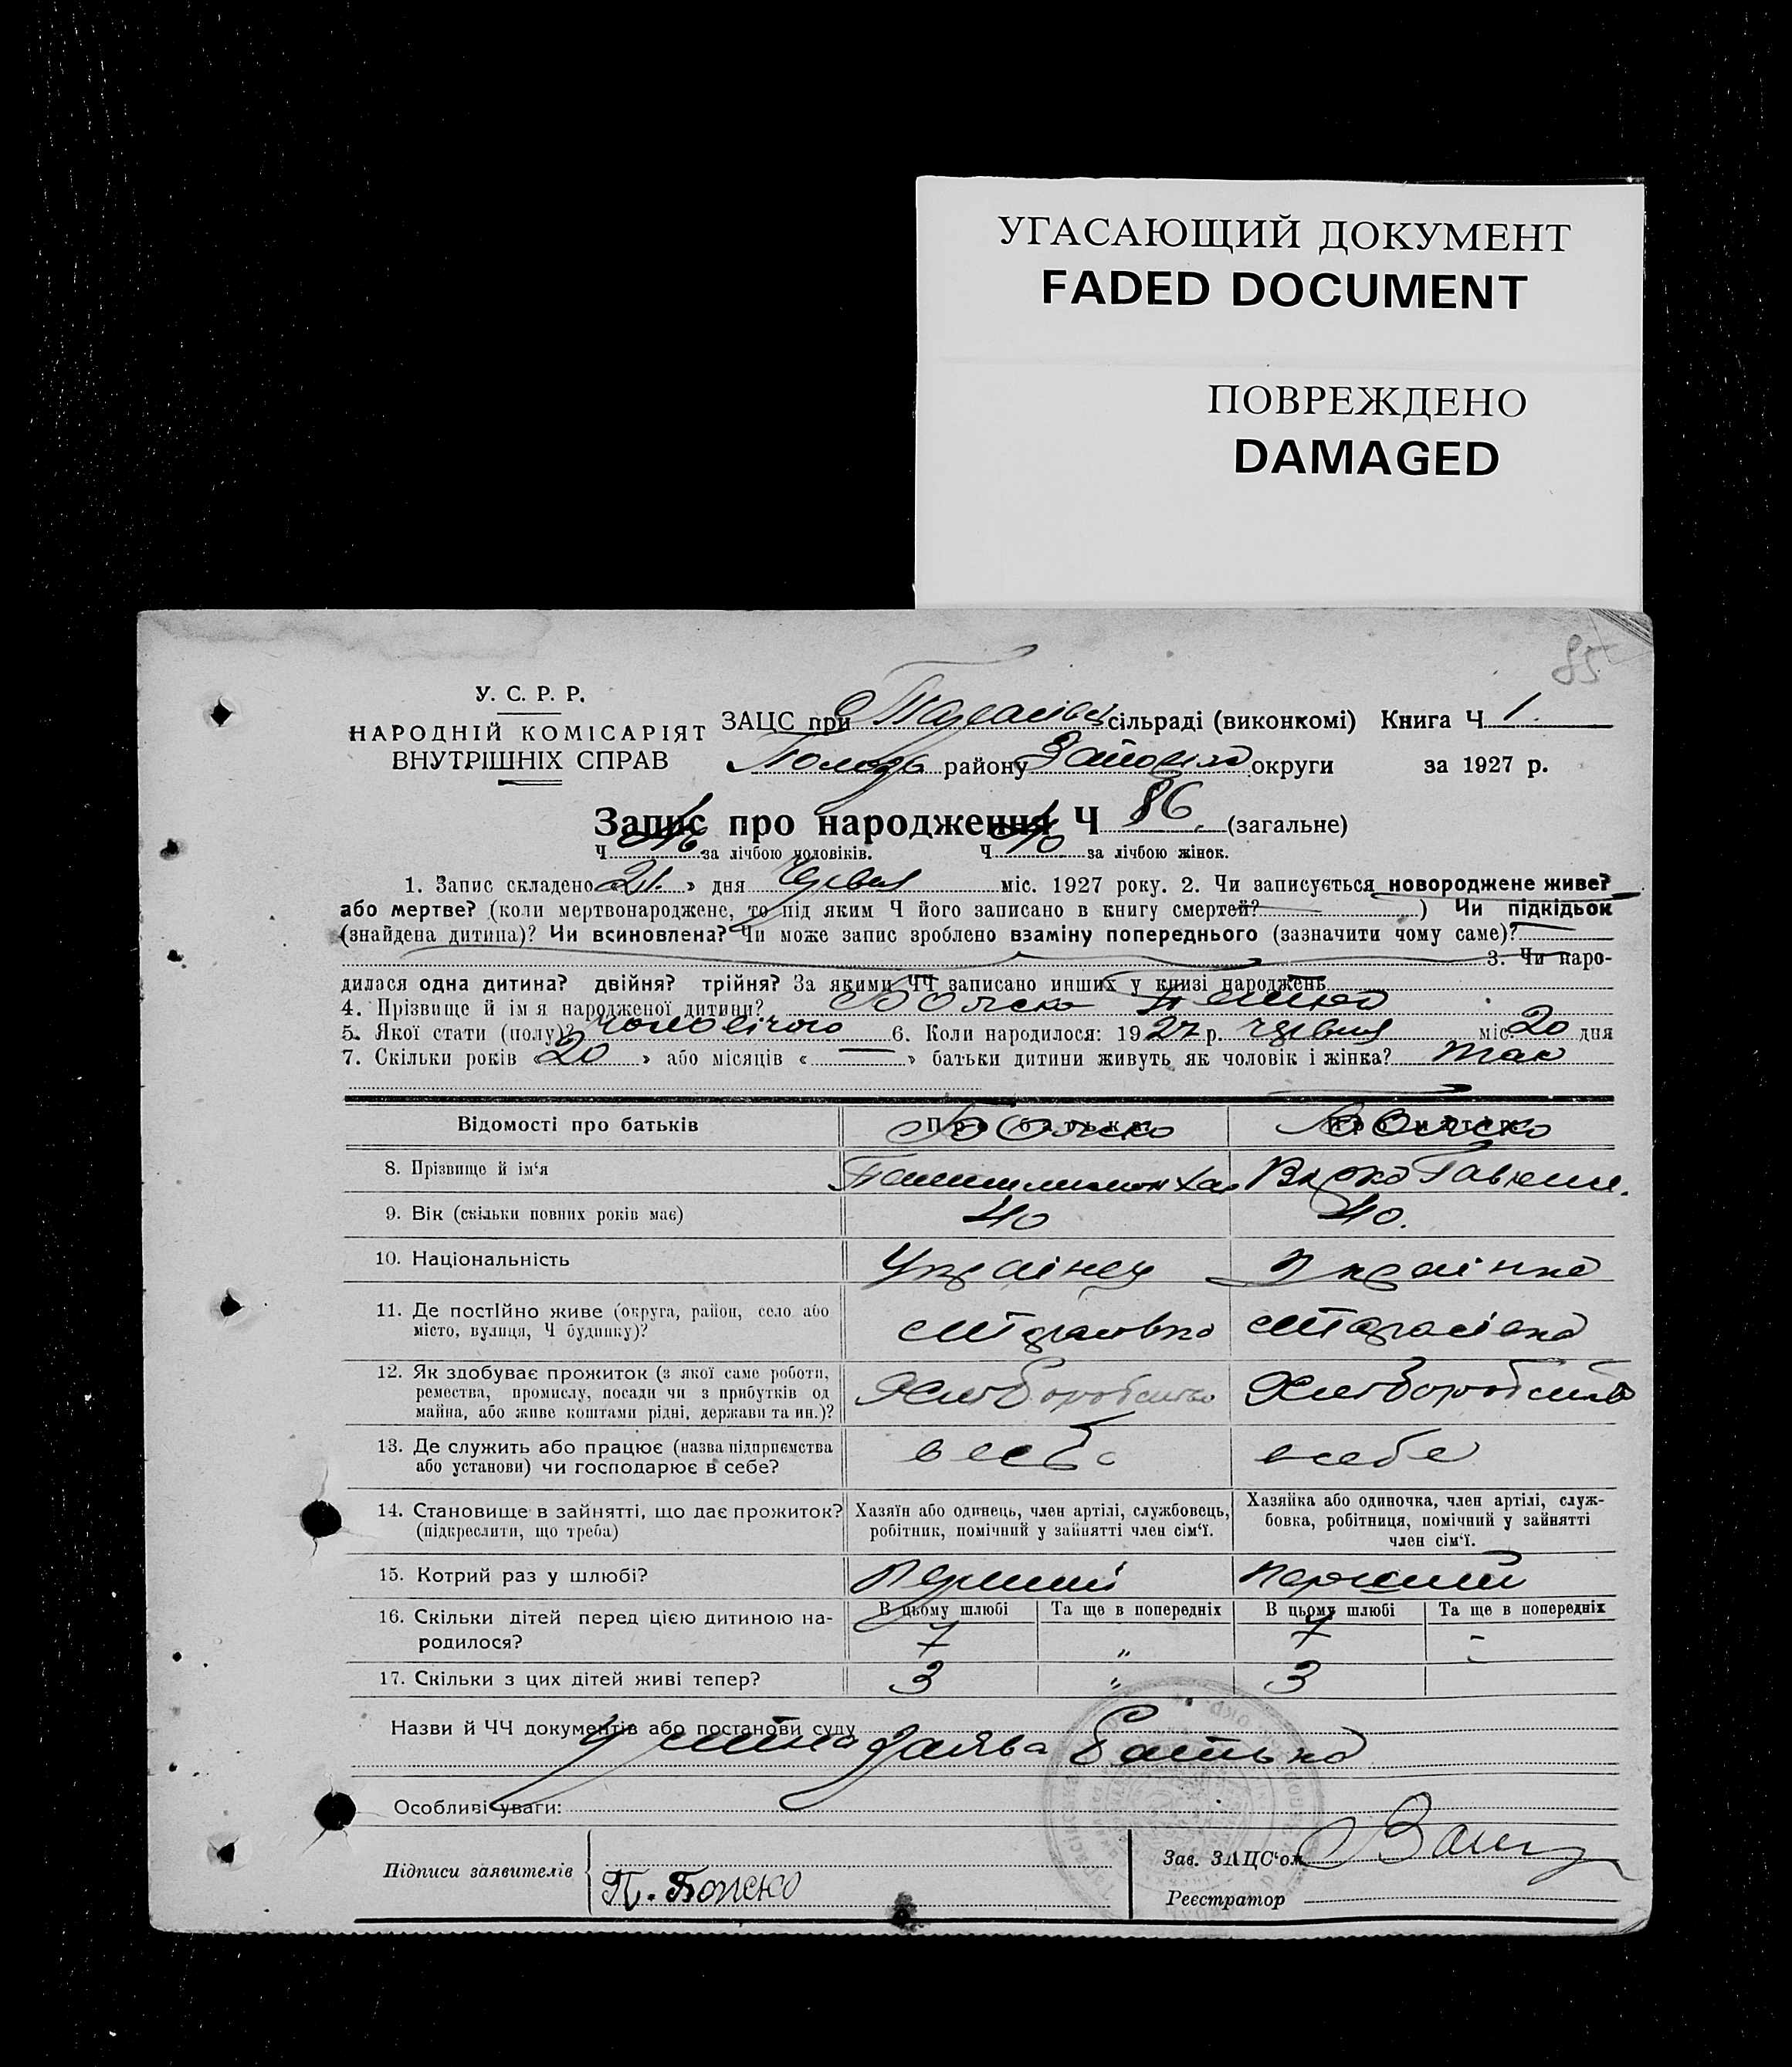 УГАСАЮЩИЙ ДОКУМЕНТ
FADED DOCUMENT
ПОВРЕЖДЕНО
DAMAGED
85
У. С. Р. Р.
НАРОДНІЙ КОМІСАРІЯТ
ВНУТРІШНІХ СПРАВ
ЗАЦС при сільраді (виконкомі) Книга Ч 1.
району округи за 1927 р.
Запис про народження Ч 86. (загальне)
Ч за лічбою чоловіків. Ч за лічбою жінок.
1. Запис складено « 21. » дня Червня міс. 1927 року. 2. Чи записується новороджене живе?
або мертве? (коли мертвонароджене, то під яким Ч його записано в книгу смертей? ) Чи підкідьок
(знайдена дитина)? Чи всиновлена? Чи може запис зроблено взаміну попереднього (зазначити чому саме)?
3. Чи наро-
дилася одна дитина? двійня? трійня? За якими ЧЧ записано инших у книзі народжень
4. Прізвище й ім я народженої дитини?
5. Якої стати (полу)? чоловічого 6. Коли народилося: 1927 р. червня міс. 20 дня
7. Скільки років « 20 » або місяців « — » батьки дитини живуть як чоловік і жінка? так
Відомості про батьків
8. Прізвище й ім'я
9. Вік (скільки повних років має) 40 40.
10. Національність Українец Українка
11. Де постійно живе (округа, район, село або
місто, вулиця, Ч будинку)?
12. Як здобуває прожиток (з якої саме роботи,
ремества, промислу, посади чи з прибутків од
майна, або живе коштами рідні, держави та ин.)?
13. Де служить або працює (назва підприємства
або установи) чи господарює в себе? в себе всебе
14. Становище в зайнятті, що дає прожиток? Хазяїн або одинець, член артілі, службовець, Хазяйка або одиночка, член артілі, служ-
(підкреслити, що треба) робітник, помічний у зайнятті член сім'ї. бовка, робітниця, помічний у зайнятті
член сім'ї.
15. Котрий раз у шлюбі? Перший перший
16. Скільки дітей перед цією дитиною на- В цьому шлюбі Та ще в попередніх В цьому шлюбі Та ще в попередніх
родилося? 7 „ 7 -
17. Скільки з цих дітей живі тепер? 3 „ 3
Назви й ЧЧ документів або постанови суду
Устна заява батька
Особливі уваги:
Підписи заявителів П. Бояско
Зав. ЗАЦС'ом
Реєстратор